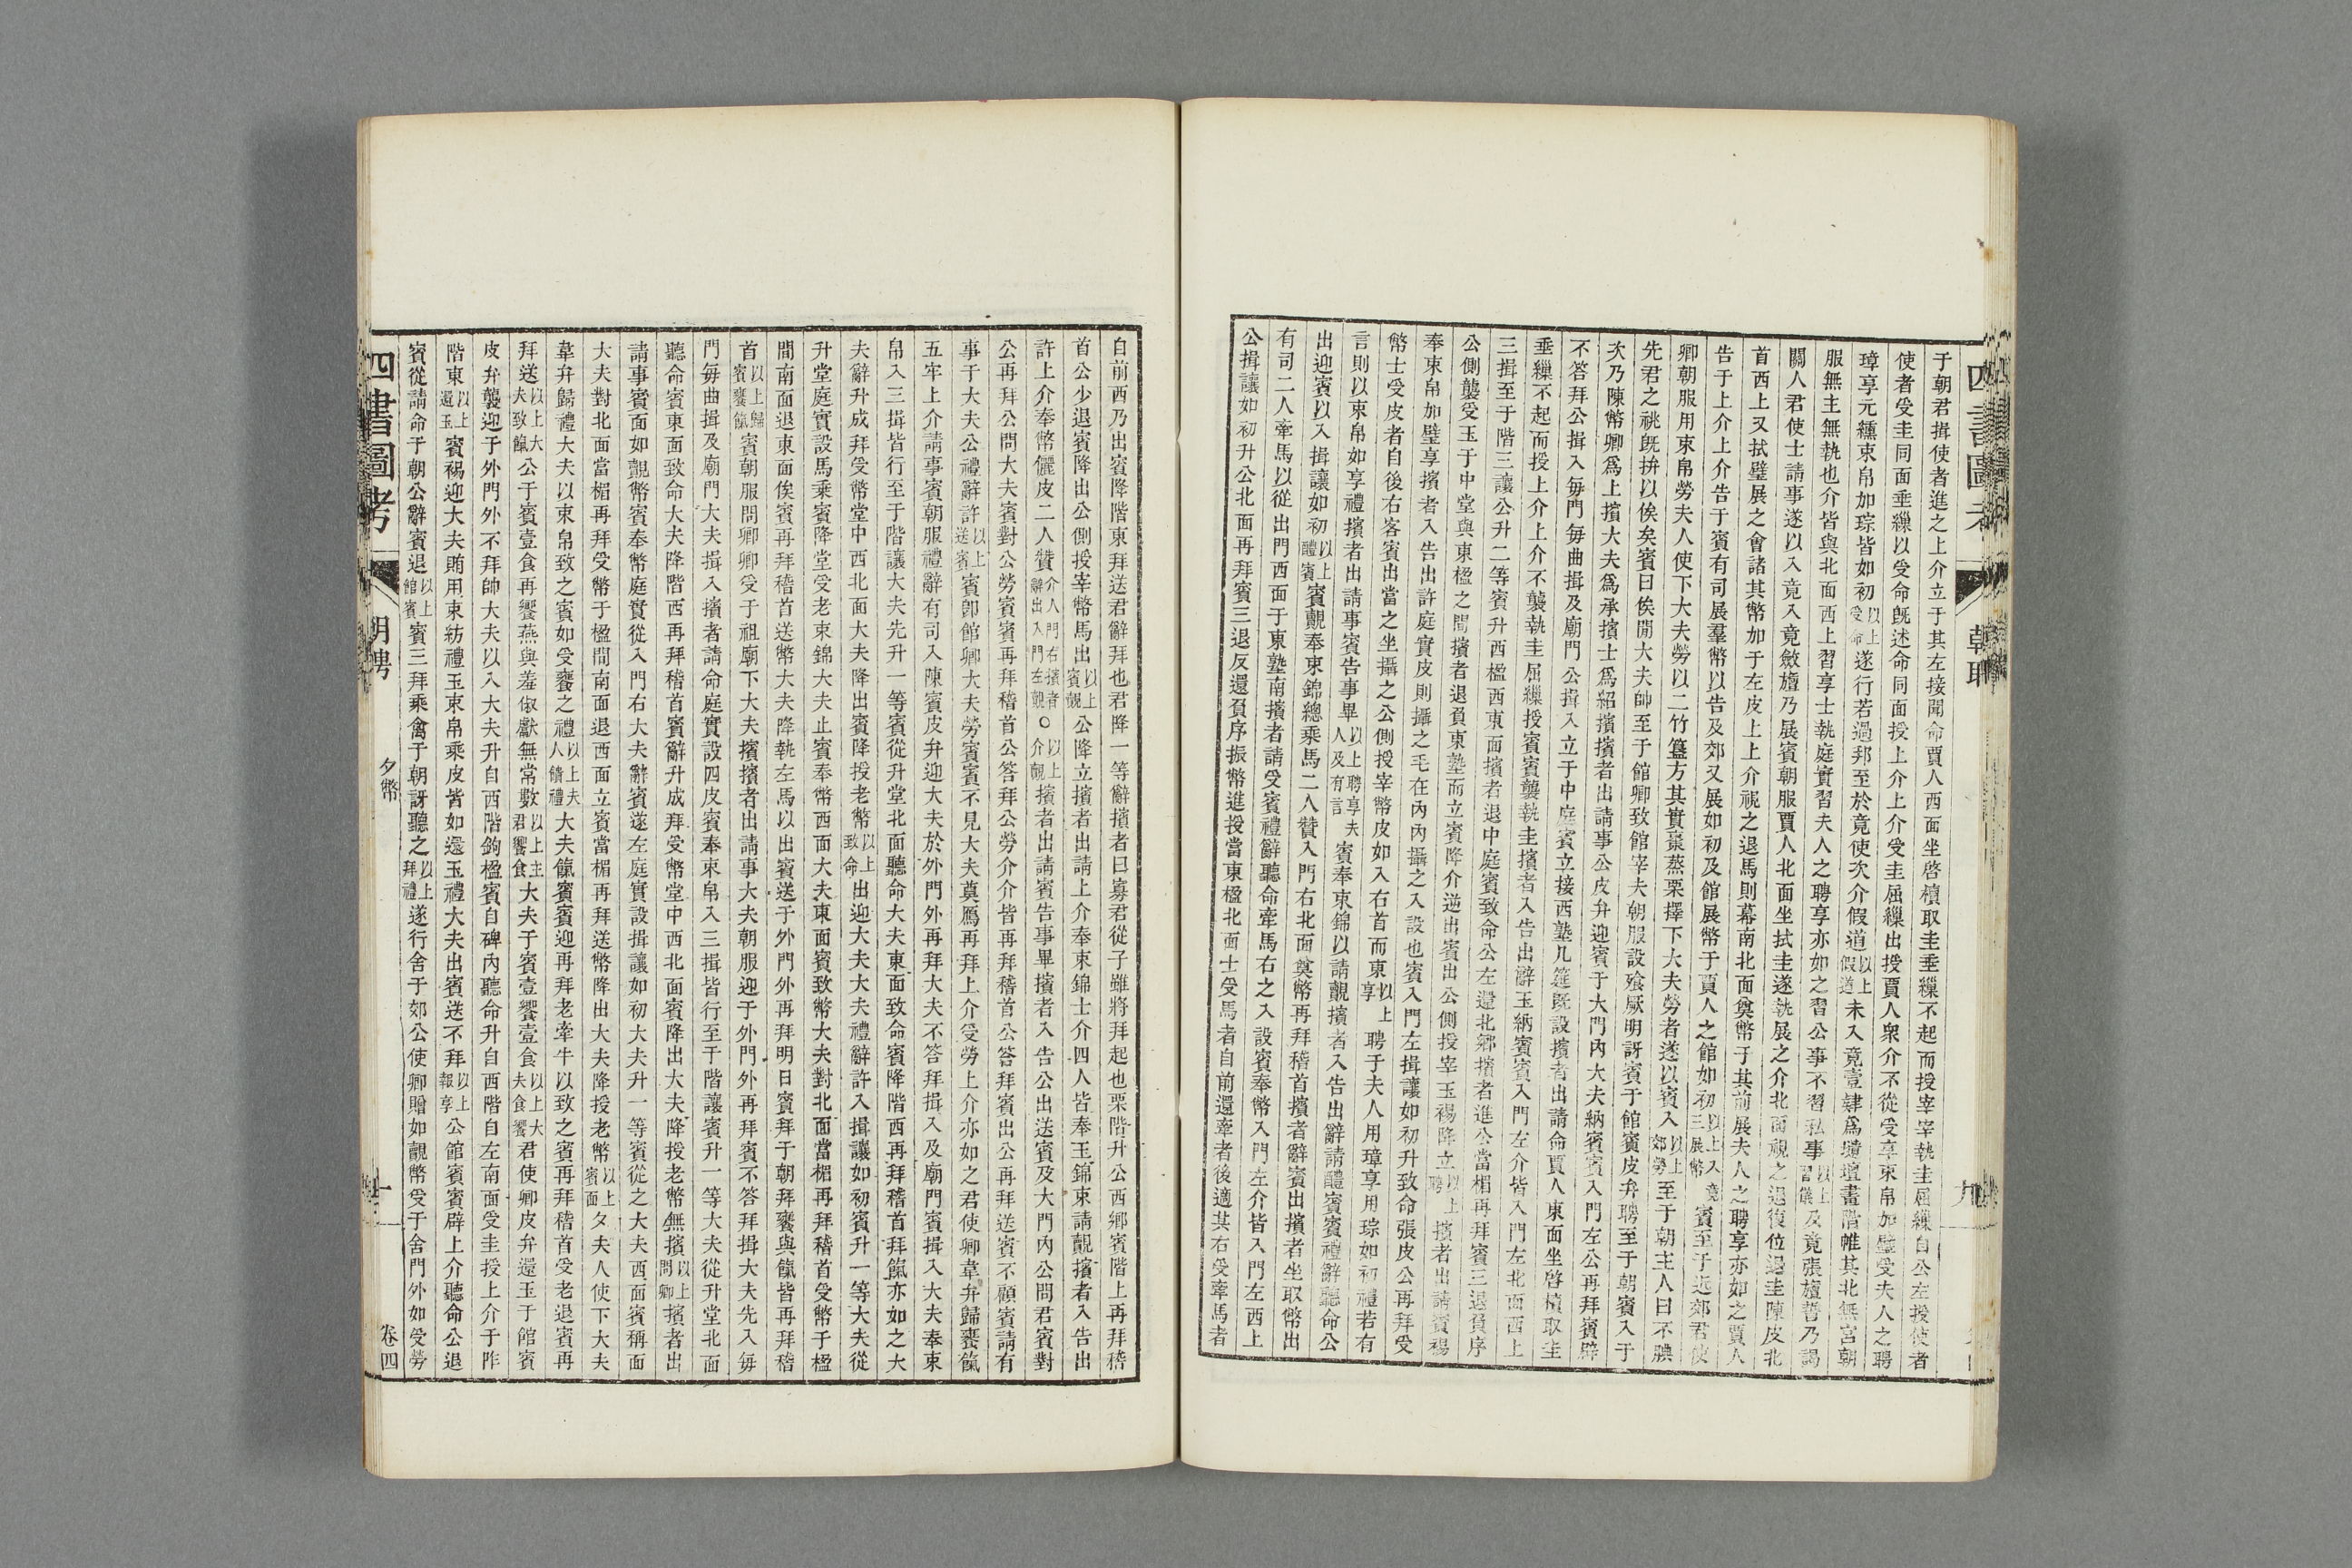 于朝君揖使者進之上介立于其左接聞命賈人西面坐啓櫝取圭垂繅不起而授宰宰執圭屈繅自公左授使者
使者受圭同面垂繅以受命既述命同面授上介上介受圭屈繅出授賈人衆介不從受享束帛加璧受夫人之聘
璋享元纁束帛加琮皆如初以上受命遂行若過邦至於竟使次介假道以上假道未入竟壹肄爲壝壇畫階帷其北無宮朝
服無主無執也介皆與北面西上習享士執庭實習夫人之聘享亦如之習公事不習私事以上習儀及竟張旜誓乃謁
關人君使士請事遂以入竟入竟斂旜乃展賓朝服賈人北面坐拭圭遂執展之介北面視之退復位退圭陳皮北
首西上又拭璧展之會諸其幣加于左皮上上介視之退馬則幕南北面奠幣于其前展夫人之聘享亦如之賈人
告于上介上介告于賓有司展羣幣以告及郊又展如初及館展幣于賈人之館如初以上入竟三展幣賓至于近郊君使
卿朝服用束帛勞夫人使下大夫勞以二竹簋方其實棗蒸栗擇下大夫勞者遂以賓入以上郊勞至于朝主人曰不腆
先君之祧既拚以俟矣賓曰俟閒大夫帥至于館卿致館宰夫朝服設飧厥明訝賓于館賓皮弁聘至于朝賓入于
次乃陳幣卿爲上擯大夫爲承擯士爲紹擯擯者出請事公皮弁迎賓于大門內大夫納賓賓入門左公再拜賓辟
不答拜公揖入每門每曲揖及廟門公揖入立于中庭賓立接西塾几筵既設擯者出請命賈人東面坐啓櫝取圭
垂繅不起而授上介上介不襲執圭屈繅授賓賓襲執圭擯者入告出辭玉納賓賓入門左介皆入門左北面西上
三揖至于階三讓公升二等賓升西楹西東面擯者退中庭賓致命公左還北鄉擯者進公當楣再拜賓三退負序
公側襲受玉于中堂與東楹之間擯者退負東塾而立賓降介逆出賓出公側授宰玉裼降立以上聘擯者出請賓裼
奉束帛加璧享擯者入告出許庭實皮則攝之毛在內內攝之入設也賓入門左揖讓如初升致命張皮公再拜受
幣士受皮者自後右客賓出當之坐攝之公側授宰幣皮如入右首而東以上享聘于夫人用璋享用琮如初禮若有
言則以束帛如享禮擯者出請事賓告事畢以上聘享夫人及有言賓奉束錦以請覿擯者入告出辭請醴賓賓禮辭聽命公
出迎賓以入揖讓如初以上醴賓賓覿奉束錦總乘馬二人贊入門右北面奠幣再拜稽首擯者辭賓出擯者坐取幣出
有司二人牽馬以從出門西面于東塾南擯者請受賓禮辭聽命牽馬右之入設賓奉幣入門左介皆入門左西上
公揖讓如初升公北面再拜賓三退反還負序振幣進授當東楹北面士受馬者自前還牽者後適其右受牽馬者
四書圖考 朝聘 九
自前西乃出賓降階東拜送君辭拜也君降一等辭擯者曰寡君從子雖將拜起也栗階升公西鄉賓階上再拜稽
首公少退賓降出公側授宰幣馬出以上賓覿公降立擯者出請上介奉束錦士介四人皆奉玉錦束請覿擯者入告出
許上介奉幣儷皮二人贊介入門右擯者辭出入門左覿○以上介覿擯者出請賓告事畢擯者入告公出送賓及大門內公問君賓對
公再拜公問大夫賓對公勞賓賓再拜稽首公答拜公勞介介皆再拜稽首公答拜賓出公再拜送賓不顧賓請有
事于大夫公禮辭許以上送賓賓卽館卿大夫勞賓賓不見大夫奠鴈再拜上介受勞上介亦如之君使卿韋弁歸饔餼
五牢上介請事賓朝服禮辭有司入陳賓皮弁迎大夫於外門外再拜大夫不答拜揖入及廟門賓揖入大夫奉束
帛入三揖皆行至于階讓大夫先升一等賓從升堂北面聽命大夫東面致命賓降階西再拜稽首拜餼亦如之大
夫辭升成拜受幣堂中西北面大夫降出賓降授老幣以上致命出迎大夫大夫禮辭許入揖讓如初賓升一等大夫從
升堂庭實設馬乘賓降堂受老束錦大夫止賓奉幣西面大夫東面賓致幣大夫對北面當楣再拜稽首受幣于楹
間南面退東面俟賓再拜稽首送幣大夫降執左馬以出賓送于外門外再拜明日賓拜于朝拜饔與餼皆再拜稽
首以上歸賓饔餼賓朝服問卿卿受于祖廟下大夫擯擯者出請事大夫朝服迎于外門外再拜賓不答拜揖大夫先入每
門每曲揖及廟門大夫揖入擯者請命庭實設四皮賓奉束帛入三揖皆行至于階讓賓升一等大夫從升堂北面
聽命賓東面致命大夫降階西再拜稽首賓辭升成拜受幣堂中西北面賓降出大夫降授老幣無擯以上問卿擯者出
請事賓面如覿幣賓奉幣庭實從入門右大夫辭賓遂左庭實設揖讓如初大夫升一等賓從之大夫西面賓稱面
大夫對北面當楣再拜受幣于楹間南面退西面立賓當楣再拜送幣降出大夫降授老幣以上賓面夕夫人使下大夫
韋弁歸禮大夫以束帛致之賓如受饔之禮以上夫人饋禮大夫餼賓賓迎再拜老牽牛以致之賓再拜稽首受老退賓再
拜送以上大夫致餼公于賓壹食再饗燕與羞俶獻無常數以上主君饗食大夫于賓壹饗壹食以上大夫食饗君使卿皮弁還玉于館賓
皮弁襲迎于外門外不拜帥大夫以入大夫升自西階鉤楹賓自碑內聽命升自西階自左南面受圭授上介于阼
階東以上還玉賓裼迎大夫賄用束紡禮玉束帛乘皮皆如還玉禮大夫出賓送不拜以上報享公館賓賓辟上介聽命公退
賓從請命于朝公辭賓退以上館賓賓三拜乘禽于朝訝聽之以上拜禮遂行舍于郊公使卿贈如覿幣受于舍門外如受勞
四書圖考 朝聘 夕幣 十 卷四